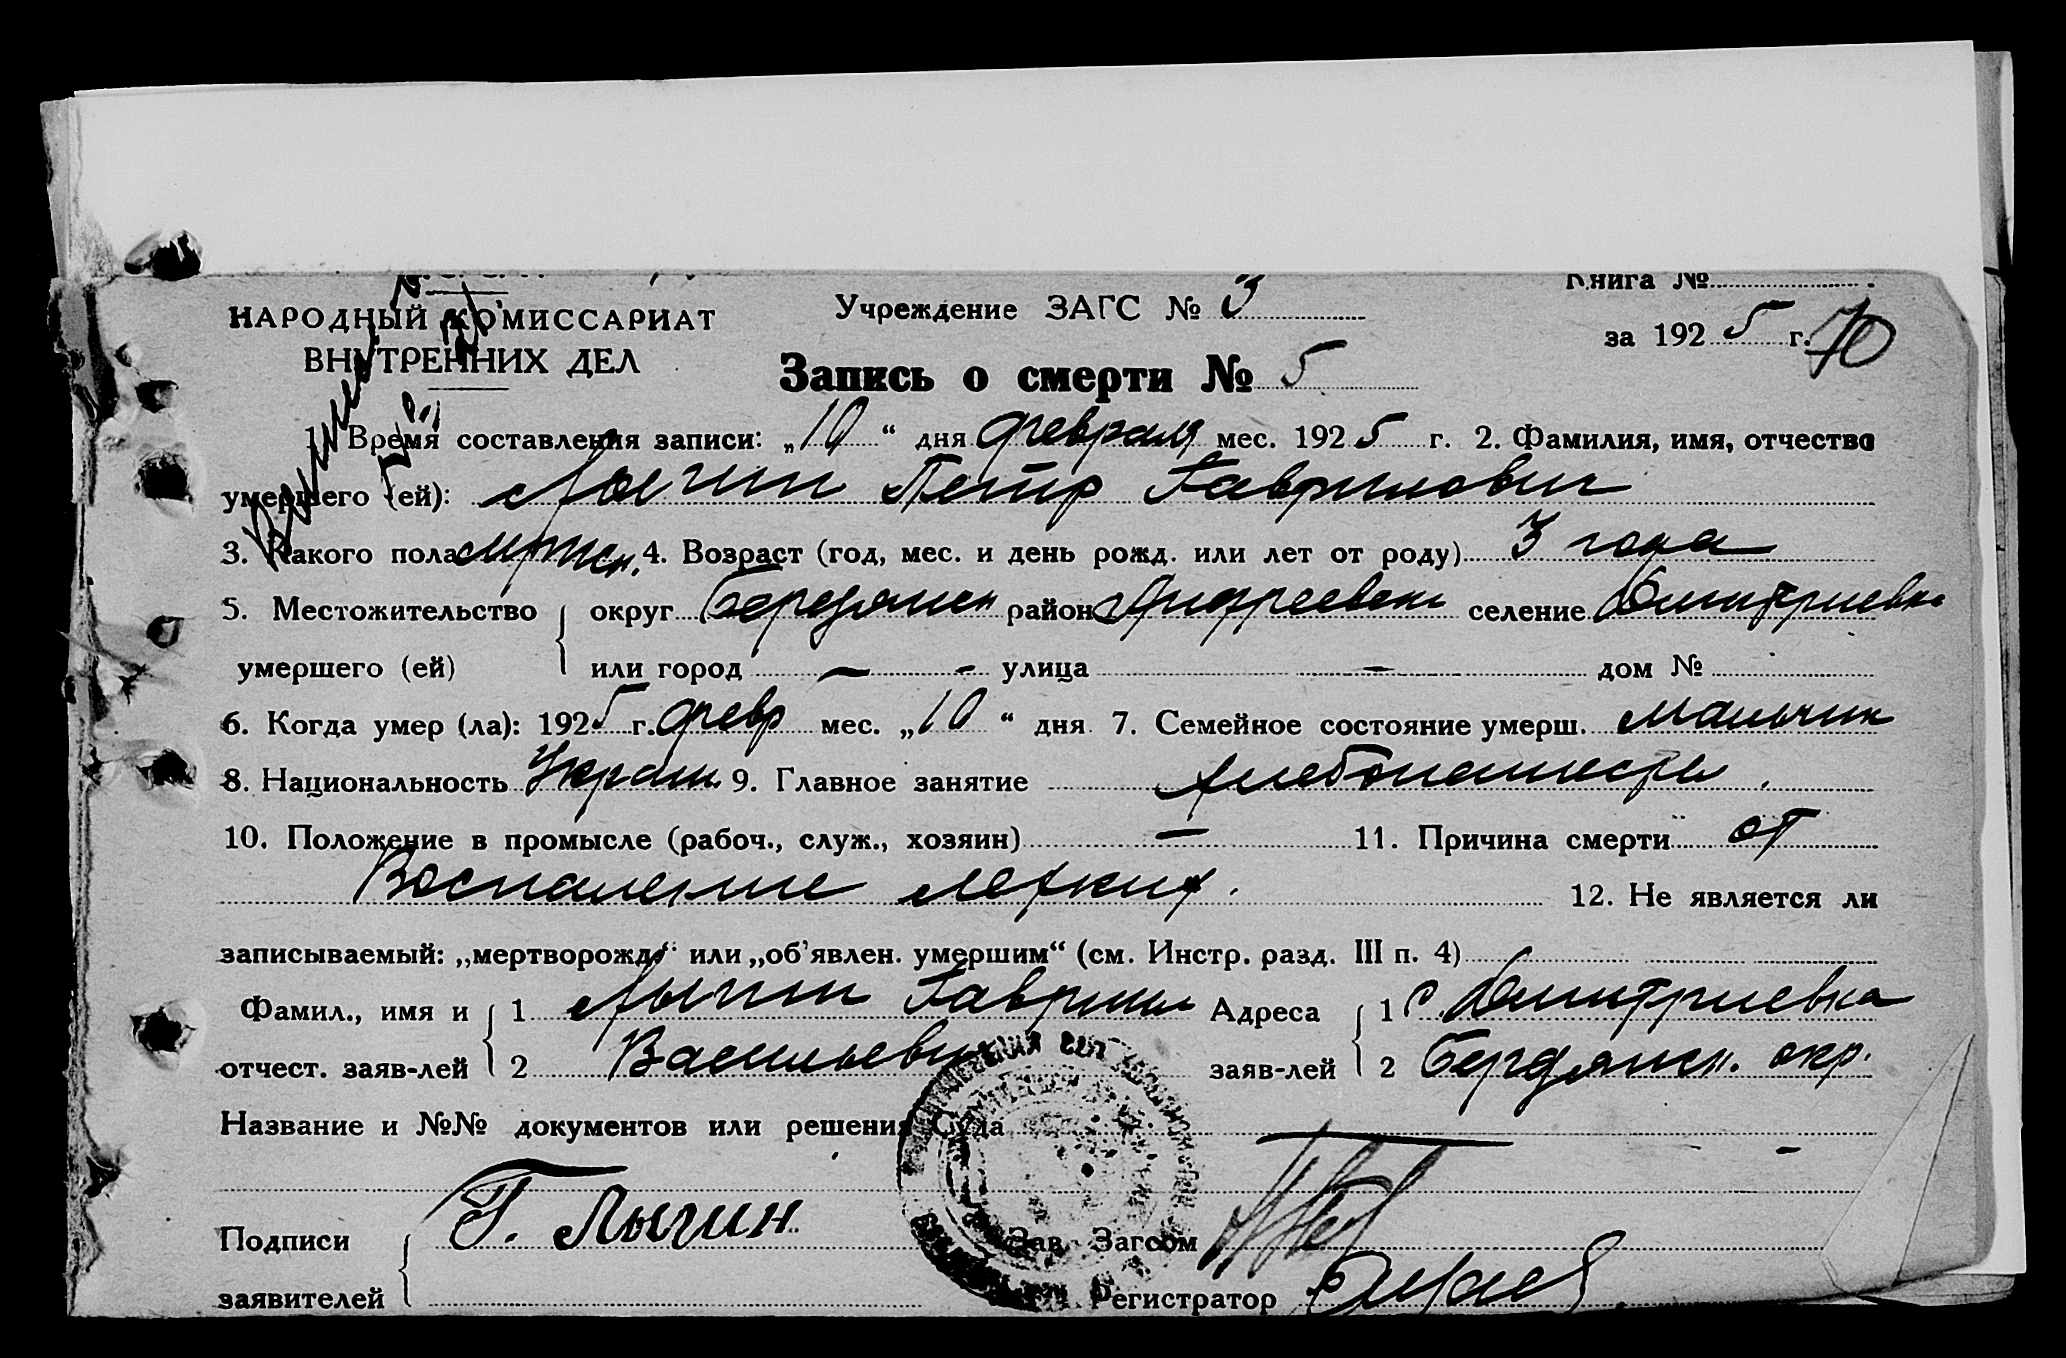 Книга №
НАРОДНЫЙ КОМИССАРИАТ Учреждение ЗАГС № 3
за 1925 г. 70
ВНУТРЕННИХ ДЕЛ
Запись о смерти № 5
1. Время составления записи: „10“ дня февраля мес. 1925 г. 2. Фамилия, имя, отчество
умершего (ей): Лыгин Петр Гаврилович
3. Какого пола мужск. 4. Возраст (год, мес. и день рожд. или лет от роду) 3 года
5. Местожительство округ Бердянск район Андреевск селение Дмитриевка
умершего (ей) или город — - улица — дом №
6. Когда умер (ла): 1925 г. февр мес. „10“ дня 7. Семейное состояние умерш. мальчик
8. Национальность Украин 9. Главное занятие хлебопашество.
10. Положение в промысле (рабоч., служ., хозяин) — 11. Причина смерти от
Воспаление легких. 12. Не является ли
записываемый: „мертворожд“ или „об'явлен. умершим“ (см. Инстр. разд. III п. 4)
Фамил., имя и 1 Лыгин Гаврил Адреса 1 С. Дмитриевка
отчест. заяв-лей 2 Васильевич заяв-лей 2 Бердянск. окр.
Название и №№ документов или решения Суда
Подписи Г. Лыгин Зав. Загсом
заявителей Регистратор